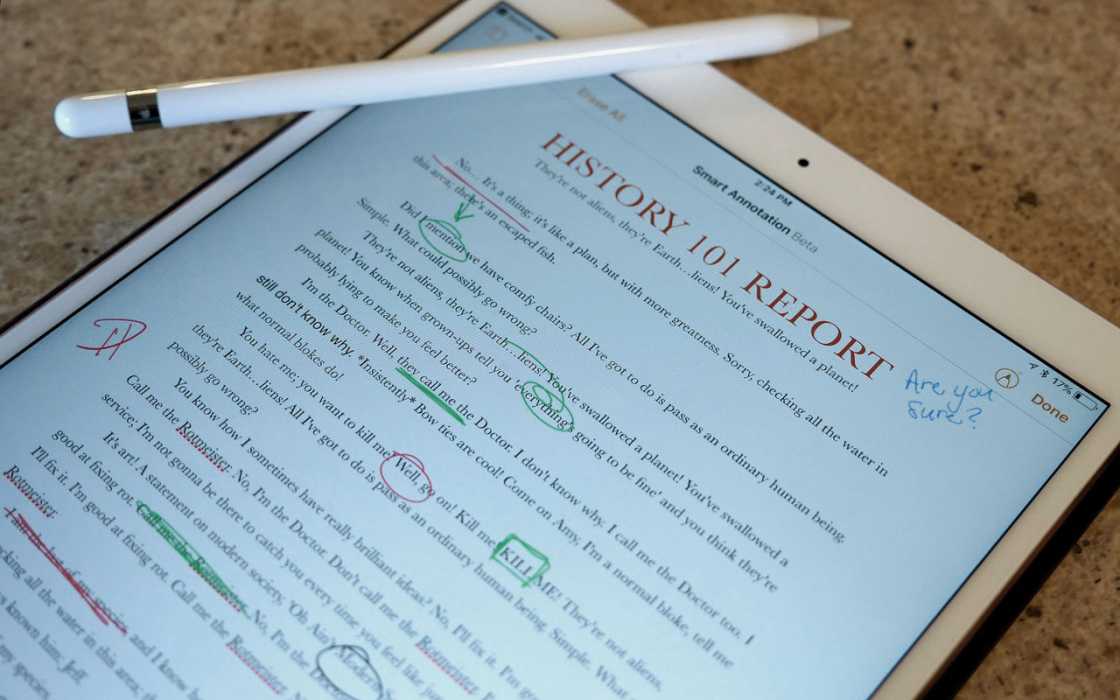 2:24 PM
17%
Erase All
Smart Annotation Beta
Done
HISTORY 101 REPORT
Are you
sure?
They're not aliens, they're Earth…liens! You've swallowed a planet!
No… It's a thing; it's like a plan, but with more greatness. Sorry, checking all the water in
this area; there's an escaped fish.
Did I mention we have comfy chairs? All I've got to do is pass as an ordinary human being.
Simple. What could possibly go wrong?
They're not aliens, they're Earth…liens! You've swallowed a planet! You've swallowed a
planet! You know when grown-ups tell you 'everything's going to be fine' and you think they're
probably lying to make you feel better?
I'm the Doctor. Well, they call me the Doctor. I don't know why. I call me the Doctor too. I
still don't know why. *Insistently* Bow ties are cool! Come on Amy, I'm a normal bloke, tell me
what normal blokes do!
You hate me; you want to kill me! Well, go on! Kill me! KILL ME! They're not aliens,
they're Earth…liens! All I've got to do is pass as an ordinary human being. Simple. What
possibly go wrong?
You know how I sometimes have really brilliant ideas? No, I'll fix it. I'm
Call me the Rotmeister. No, I'm the Doctor. Don't call me the Rotmeister.
service; I'm not gonna be there to catch you every time you feel like
It's art! A statement on modern society, 'Oh Ain't Modern
good at fixing rot. Call me the Rotmeister. No, I'm the
I'll fix it. I'm good at fixing rot. Call me the Rotmeister.
Rotmeister.
I am the last of my species, and I know
all the water in this area;
known him, Jeff.
my species